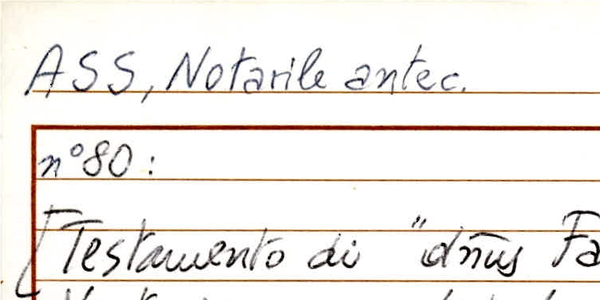 ASS, Notarile antec.
n° 80 :
[Testamento di "dn̄us Fa